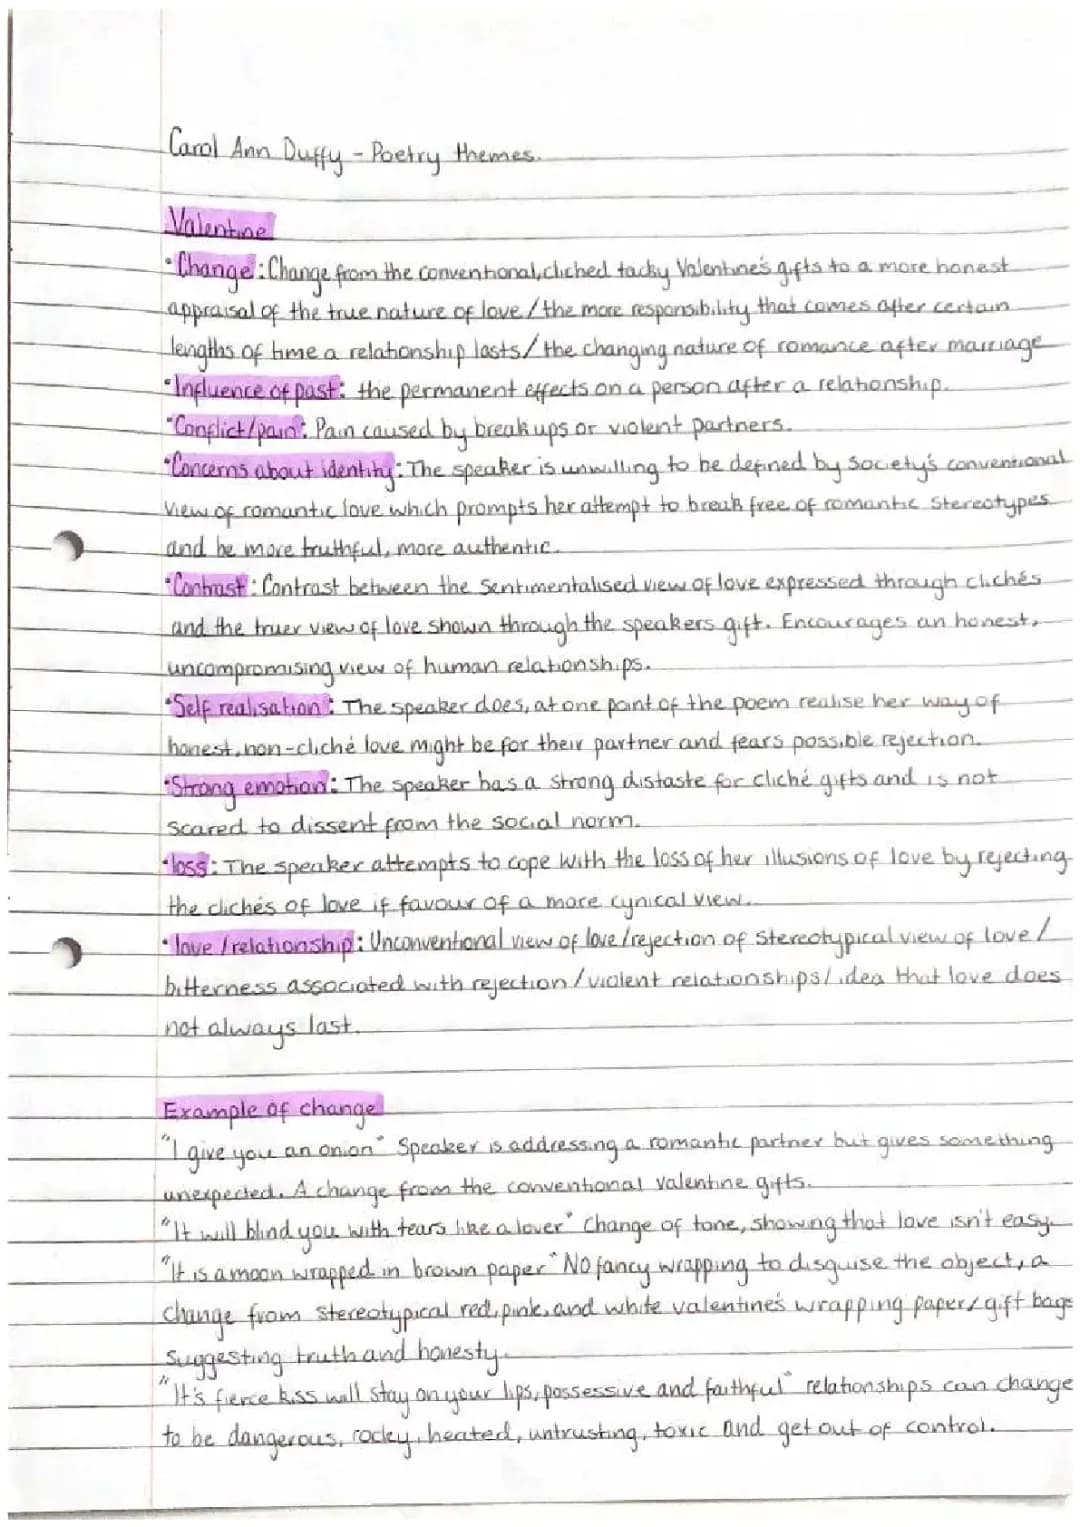 Carol Ann Duffy - Poetry themes.
Valentine
•Change: Change from the conventional, cliched tacky Valentine's gifts to a more honest
appraisal of the true nature of love / the more responsibility that comes after certain
lengths of time a relationship lasts / the changing nature of romance after marriage
•Influence of past: the permanent effects on a person after a relationship.
•Conflict/pain: Pain caused by breakups or violent partners.
•Concerns about identity: The speaker is unwilling to be defined by society's conventional
view of romantic love which prompts her attempt to break free of romantic stereotypes
and be more truthful, more authentic.
•Contrast: Contrast between the sentimentalised view of love expressed through clichés
and the truer view of love shown through the speakers gift. Encourages an honest,
uncompromising view of human relationships.
•Self realisation: The speaker does, at one point of the poem realise her way of
honest, non-cliché love might be for their partner and fears possible rejection.
•Strong emotion: The speaker has a strong distaste for cliché gifts and is not
scared to dissent from the social norm.
•loss: The speaker attempts to cope with the loss of her illusions of love by rejecting
the clichés of love if favour of a more cynical view.
•love / relationship: Unconventional view of love/rejection of stereotypical view of love /
bitterness associated with rejection / violent relationships/ idea that love does
not always last.
Example of change
"I give you an onion" Speaker is addressing a romantic partner but gives something
unexpected. A change from the conventional valentine gifts.
"It will blind you with tears like a lover" Change of tone, showing that love isn't easy.
"It is a moon wrapped in brown paper" No fancy wrapping to disguise the object, a
change from stereotypical red, pink, and white valentine's wrapping paper/ gift bags
suggesting truth and honesty.
"It's fierce kiss will stay on your lips, possessive and faithful" relationships can change
to be dangerous, rocky, heated, untrusting, toxic and get out of control.